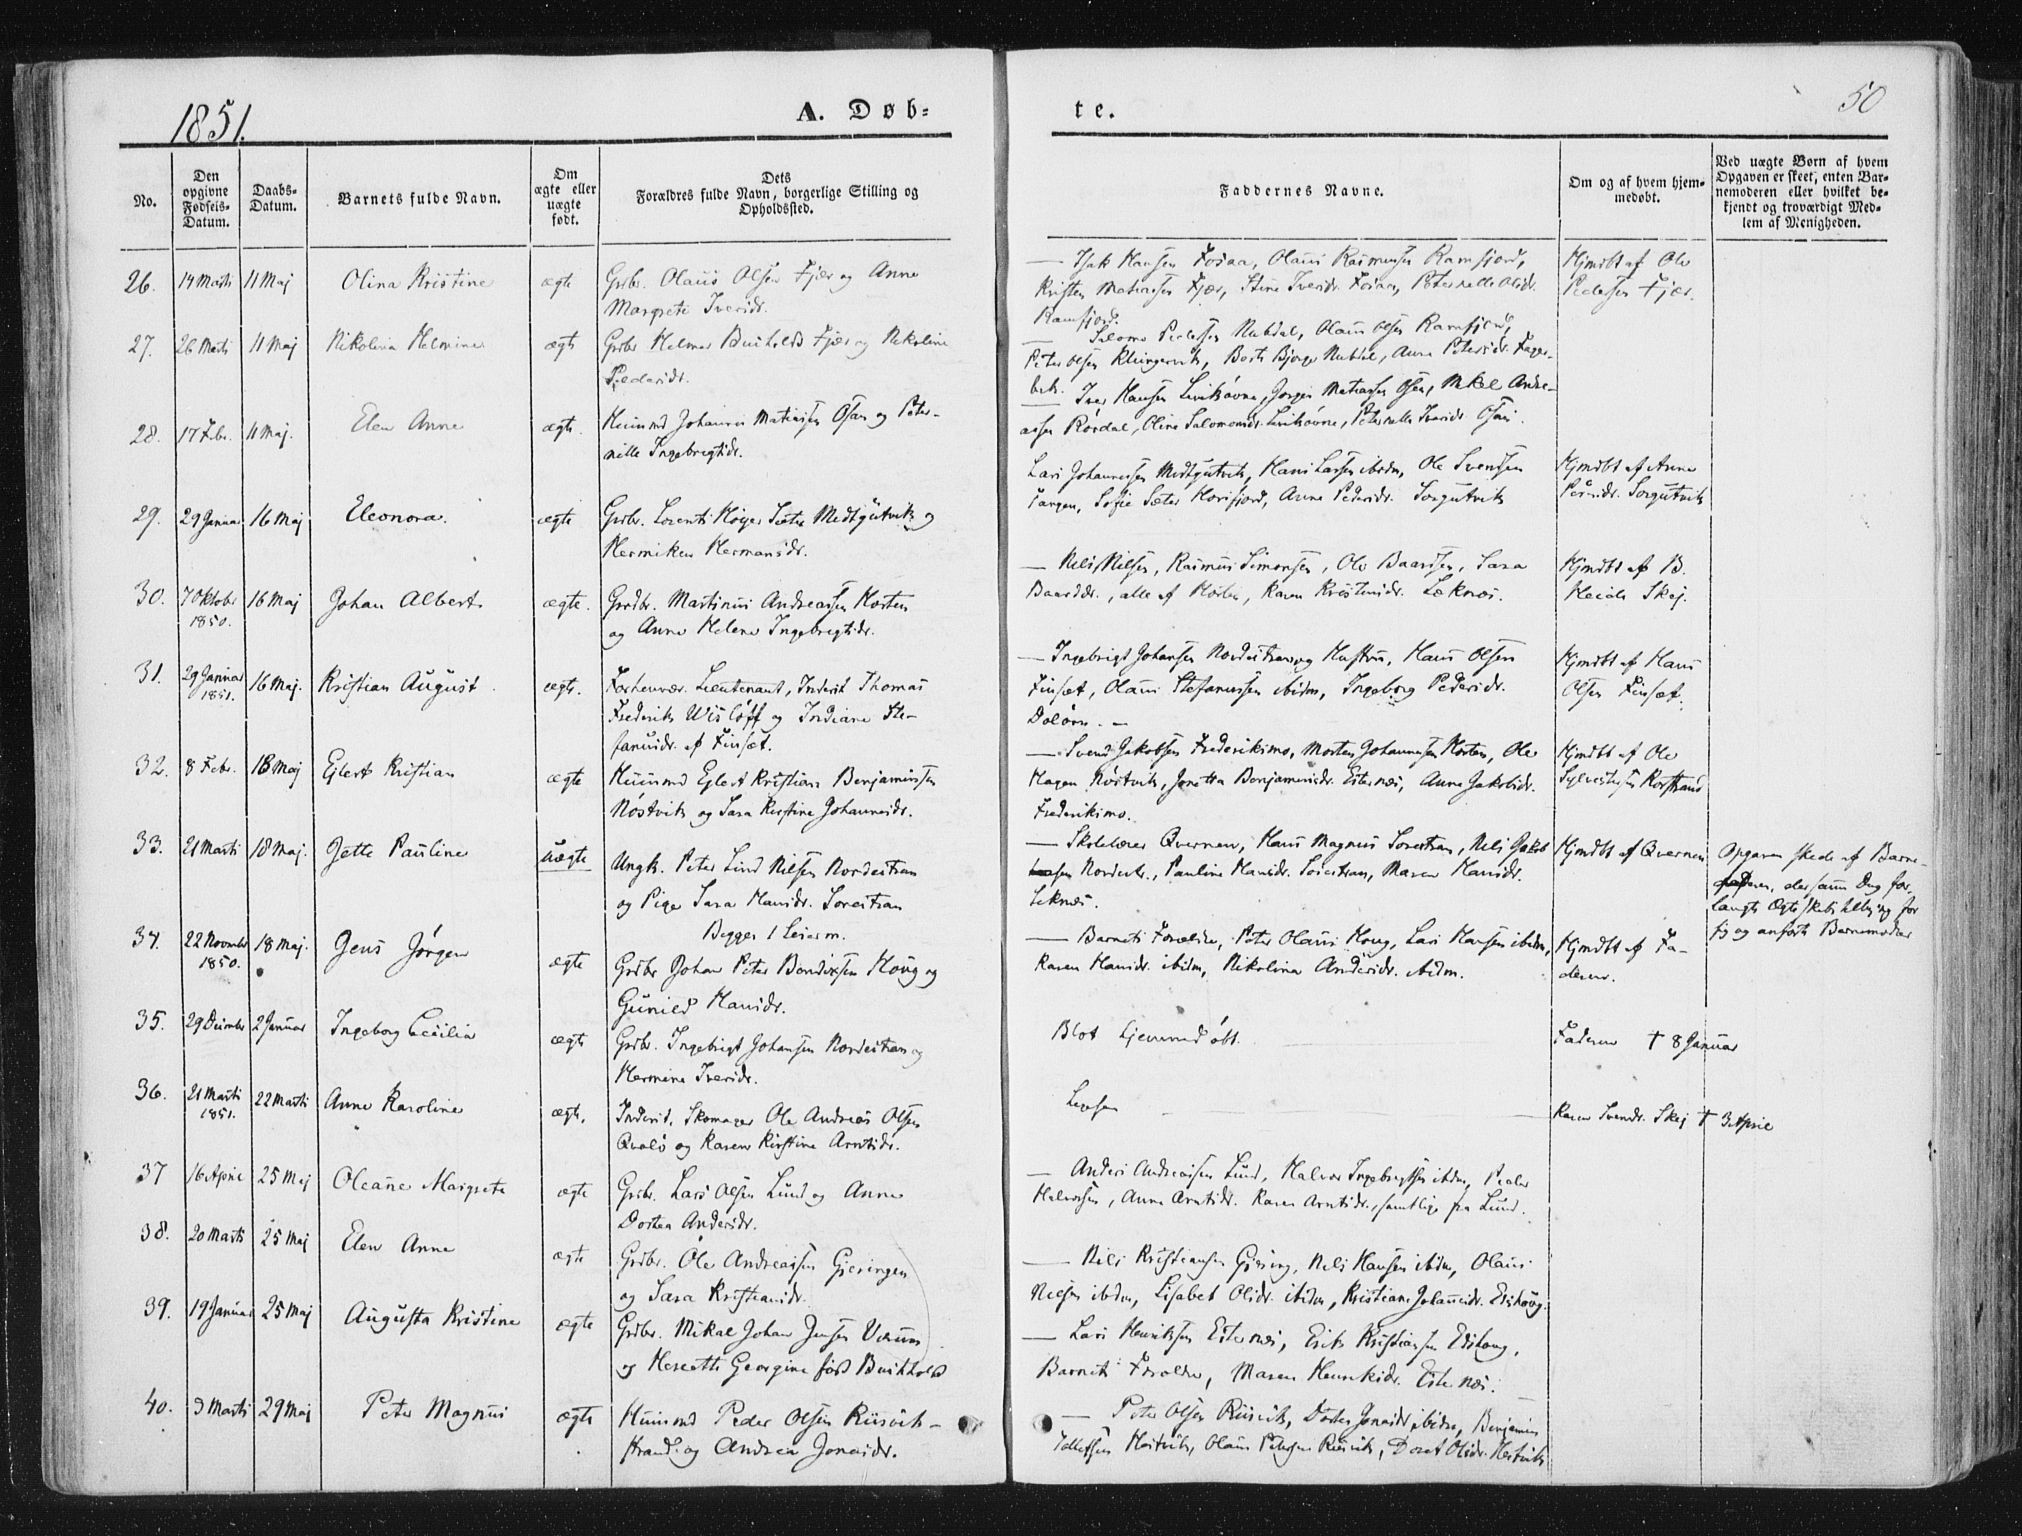 1851.
A. Døb=
te.
50
No.
Den opgivne Fødsels-Datum.
Daabs-Datum.
Barnets fulde Navn.
Om ægte eller uægte født.
Dets Forældres fulde Navn, borgerlige Stilling og Opholdssted.
Faddernes Navne.
Om og af hvem hjemmedøbt.
Ved uægte Børn af hvem Opgaven er skeet, enten Barnemoderen eller hvilket bekjendt og troværdigt Medlem af Menigheden.
26. 14 Marts 11 Maj Olina Kristine ægte Grdbr. Olaus Olsen Fjær og Anne
Margrete Iversdr.
Isak Hansen Fosaa, Olaus Rasmusen Ramfjord,
Kristen Matiassen Fjær, Stine Iversdr. Fosaa, Peternelle Olsdr.
Ramfjord.
Hjmdbt af Ole
Pedersen Fjær.
27. 26 Marts 11 Maj Nikolina Helmine ægte Grdbr Helmer Buchholdt Fjær og Nikoline
Pedersdr.
Salomo Pedersen Nubdal, Olaus Olsen Ramfjord,
Peter Olsen Klingervik, Berit Bjorge Nubdal, Anne Petersdr. Fager-
bek.
28. 17 Febr. 11 Maj. Elen Anne ægte. Huusmd Johannes Matiassen Osan og Peter-
nille Ingebrigtsdr.
Iver Hansen , Jørgen Matiassen Osan, Mikal Andre-
assen Rørdal, Oline Salomonsdr. , Peternelle Iversdr. Osan.
29. 29 Januar 16 Maj Eleonora. ægte Grdbr. Lorents Høyer Sæter Medtgutvik og
Hermiken Hermansdr.
Lars Johannessen Medtgutvik, Hans Larsen ibidm, Ole Svendsen
Tangen, Sofie Sæter Horsfjord, Anne Pedersdr. Sorgutvik
Hjmdbt af Anne
Pedersdr. Sorgutvik
30. 7 Oktober 1850. 16 Maj Johan Albert ægte. Grdbr. Martinus Andreassen Horten
og Anne Helene Ingebrigtsdr.
Nils Nilsen, Rasmus Simonsen, Ole Baardsen, Sara
Baardsdr., alle af Horten, Karen Kristensdr. Leknæs.
Hjmdbt af B.
Heide Skej.
31. 29 Januar 1851. 16 Maj. Kristian August. ægte. Forhenvær. Lieutenant, Inderst Thomas
Frederik Wisløff og Indiane Ste-
fanusdr. af Finsæt.
Ingebrigt Johansen Nordestran og Hustru, Hans Olsen
Finsæt, Olaus Stefanussen ibidm, Ingeborg Pedersdr.
Doløen.
Hjmdbt af Hans
Olsen Finsæt.
32. 8 Febr. 18 Maj Ejlert Kristian ægte Huusmd Ejlert Kristian Benjaminsen
Nøstvik og Sara Kirstine Johannesdr.
Svend Jakobsen Frederiksmo, Morten Johannesen Horten, Ole
Hagen Nøstvik, Jonetta Benjaminsdr. Esternæs, Anne Jakobsdr.
Frederiksmo.
Hjmdbt af Ole
Sylvestersen
33. 21 Marts 18 Maj. Jette Pauline uægte Ungk. Peter Lind Nilsen Nordestran
og Pige Sara Hansdr. Sorestran
Begges 1 Leierm.
Skolelærer Qvernen, Hans Magnus Sorestran, Nils Jakob
Nordestr., Pauline Hansdr. Sorestran, Maren Hansdr.
Leknæs.
Hjmdbt af Qvernen
Opgaven skede af Barne-
faderen, der samme Dag for-
langte Ægteskabs for
sig og anførte Barnemoder
34. 22 Novmbr 1850. 18 Maj. Jens Jørgen ægte Grdbr Johan Peter Bendixsen Houg og
Gunild Hansdr.
Barnets Forældre, Peter Olaus Houg, Lars Hansen ibidm,
Karen Hansdr. ibidm, Nikolina Andersdr. ibidm.
Hjmdbt af Fa-
deren.
35. 29 Decmbr 2 Januar Ingeborg Cecilia ægte Grdbr. Ingebrigt Johansen Nordestran og
Hermine Iversdr.
Blot hjemmedøbt.
Faderen † 8 Januar
36. 21 Marts 1851. 22 Marts Anne Karoline ægte. Inderst, Skomager Ole Andreas Olsen
Qvalø og Karen Kirstine Arntsdr.
Karen Svendsdr. Skej † 3 April
37 16 April 25 Maj Oleane Margrete ægte Grdbr. Lars Olsen Lund og Anne
Dortea Andersdr.
Anders Andreassen Lund, Halvor Ingebrigtsen ibidm, Peder
Halvorsen, Anne Arntsdr. Karen Arntsdr., samtlige fra Lund.
38. 20 Marts 25 Maj Elen Anne ægte Grdbr. Ole Andreassen Gjeringen
og Sara Kristiansdr.
Nils Kristiansen Gjering, Nils Hansen ibidm, Olaus
Nielsen ibidm, Lisabet Olsdr. ibidm, Kristiane Johannesdr. Edshoug.
39. 19 Januar 25 Maj Augusta Kristine ægte Grdbr. Mikal Johan Jensen
og Georgine født Buchholdt
Lars Henriksen Esternæs, Erik Kristiansen Edshoug,
Barnets Forældre, Maren Henriksdr. Esternæs.
40. 3 Marts 29 Maj Peter Magnus ægte Huusmd Peder Olsen Riisvik-
strand og Andrea Jonasdr.
Peter Olsen Riisvik, Dortea Jonasdr ibidm, Benjamin
Hestvik, Olaus Petersen Riisvik, Doret Olsdr. Hestvik